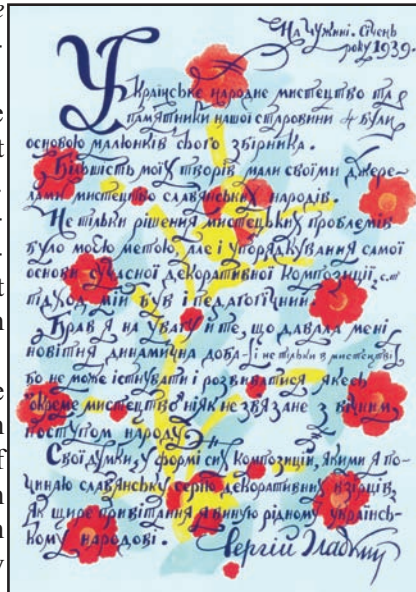 На Чужині. Січень
року 1939-
Українське народне мистецтво та
памятники нашої старовини були
основою малюнків свого збірника.
Більшість моїх творів мали своїми джере-
лами мистецтво славянських народів.
Не тільки рішення мистецьких проблемів
було моєю метою, але і упорядкування самої
основи сучасної декоративної композиції,
підход мій був і педагогічний.
Брав я на увагу й те, що давала мені
новітня динамична доба - (і не тільки в мистецтві)
бо не може істнувати і розвиватися якесь
"окреме мистецтво" ніяк не звязане з вічним
поступом народу.
Свої думки, у формі сих композицій, якими я по-
чинаю славянську серію декоративних взірців,
Як щире привітання я виную рідному українсь-
кому народові. Сергій Гладкий